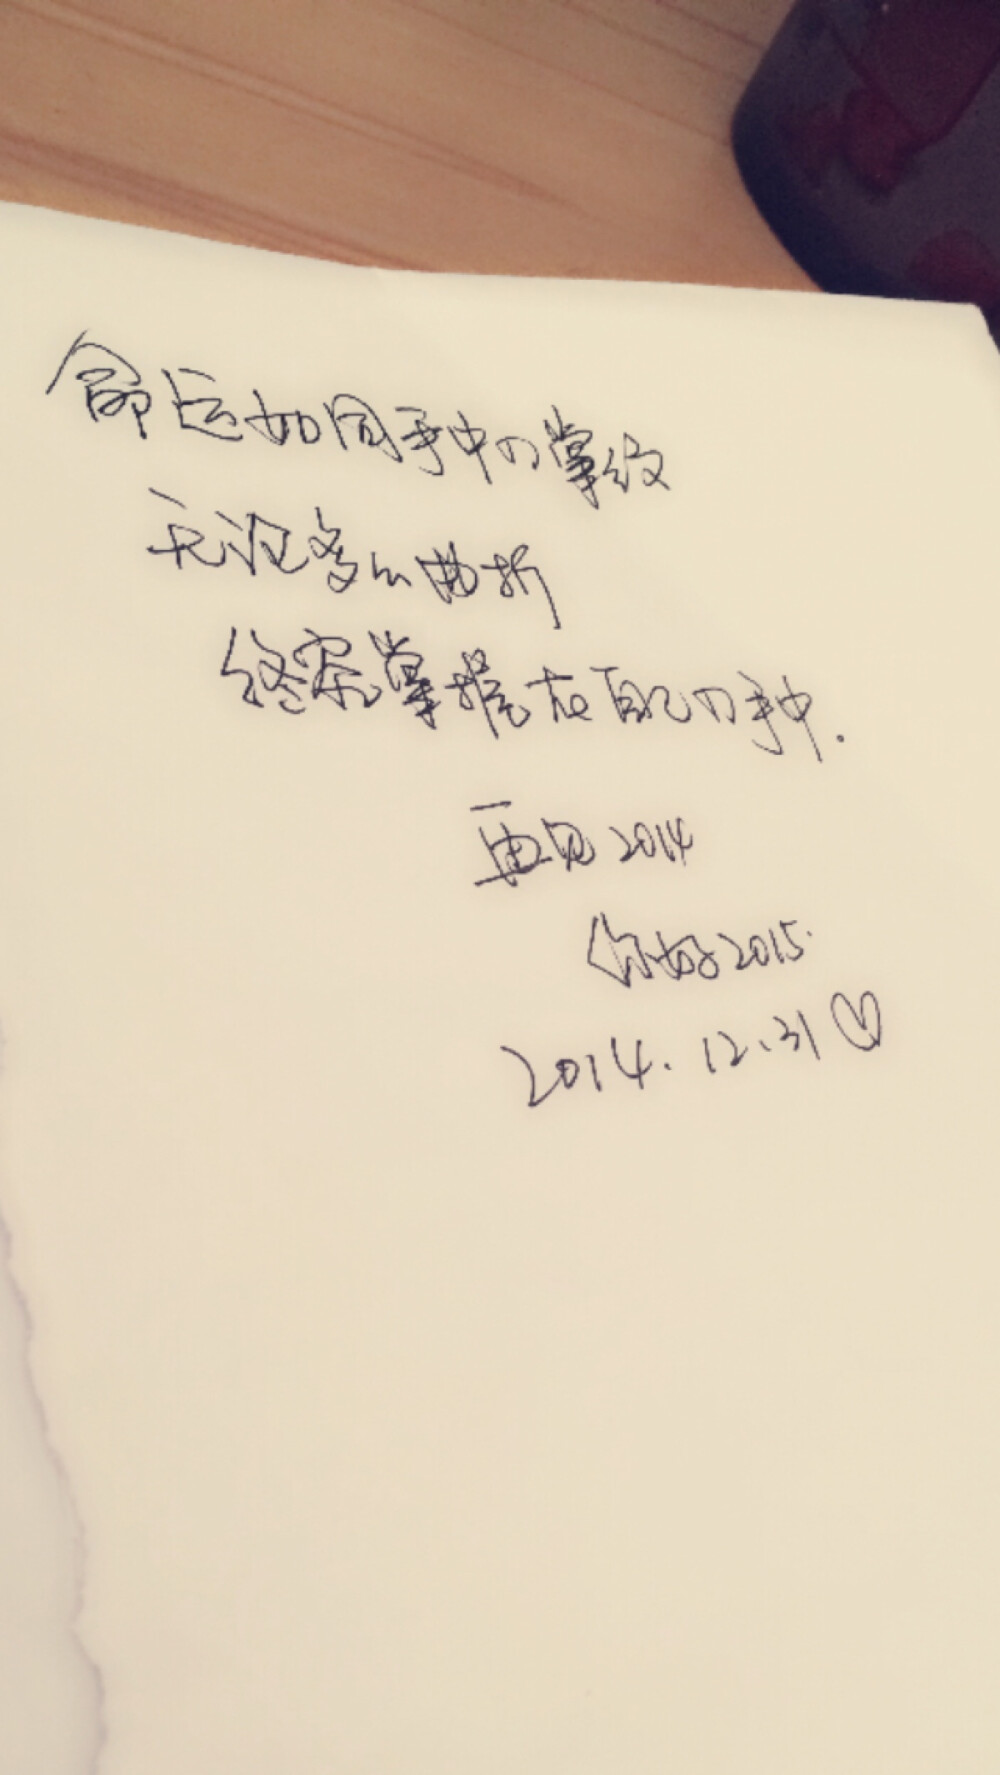 命运如同手中的掌纹
无论多么曲折
终究掌握在自己的手中.
再见2014
你好2015.
2014.12.31♡